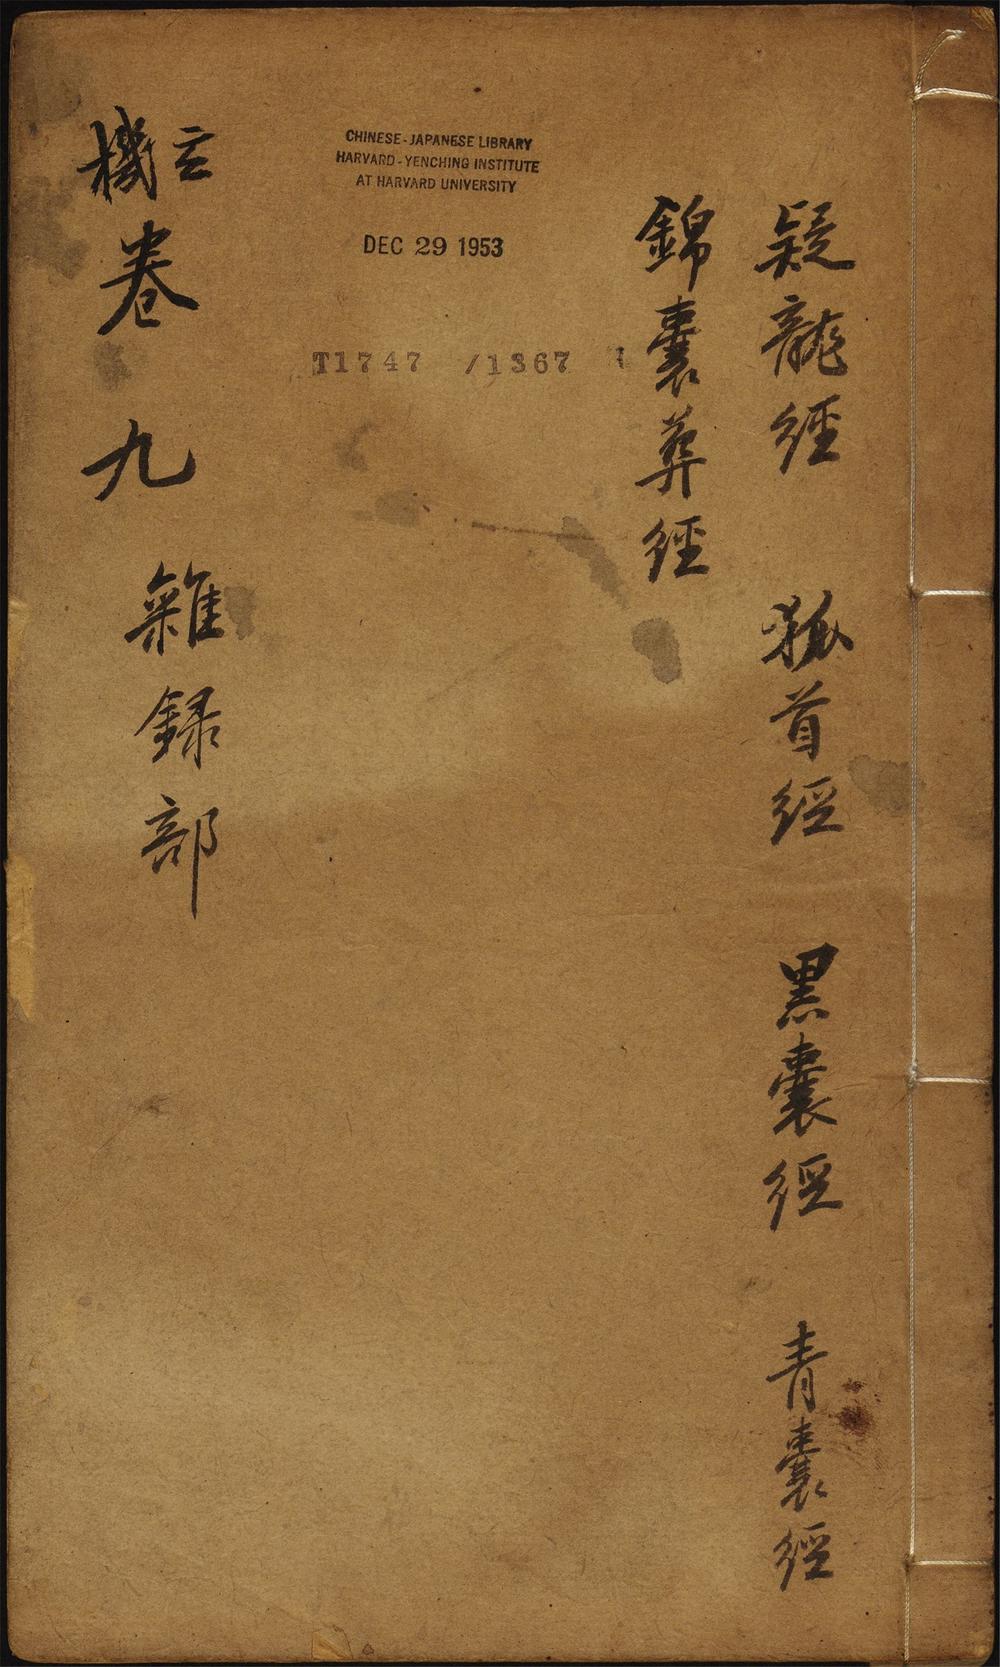 疑龍經 狐首經 黑囊經 青囊經
錦囊葬經
CHINESE-JAPANESE LIBRARY
HARVARD-YENCHING INSTITUTE
AT HARVARD UNIVERSITY
DEC 29 1953
T1747 /1367
機卷九 雜録部